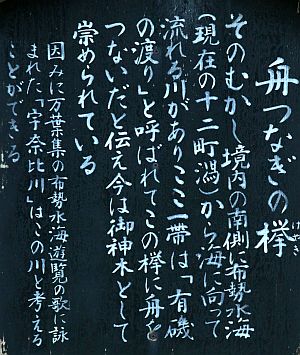 舟つなぎの欅
けやき
そのむかし境内の南側に布勢水海
(現在の十二町潟)から海に向って
流れる川がありここ一帯は「有磯
の渡り」と呼ばれてこの欅に舟を
つないだと伝え今は御神木として
崇められている
因みに万葉集の布勢水海遊覧の歌に詠
まれた「宇奈比川」はこの川と考える
ことができる